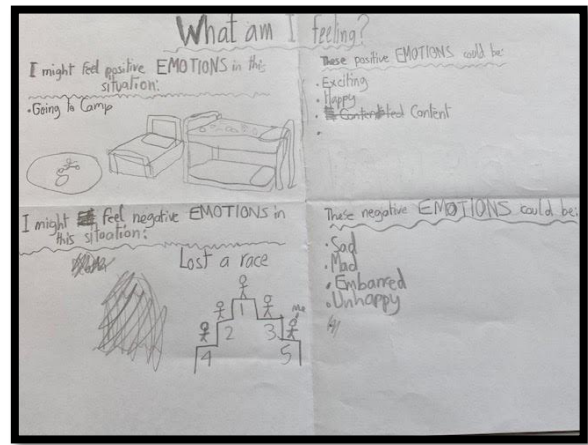 What am I feeling?
I might feel positive EMOTIONS in this
situation:
• Going to Camp
These positive EMOTIONS could be:
• Exciting
• Happy
• Content
•
I might feel negative EMOTIONS in
this situation:
Lost a race
1
2
3
Me
4
5
These negative EMOTIONS could be:
• Sad
• Mad
• Embarred
• Unhappy